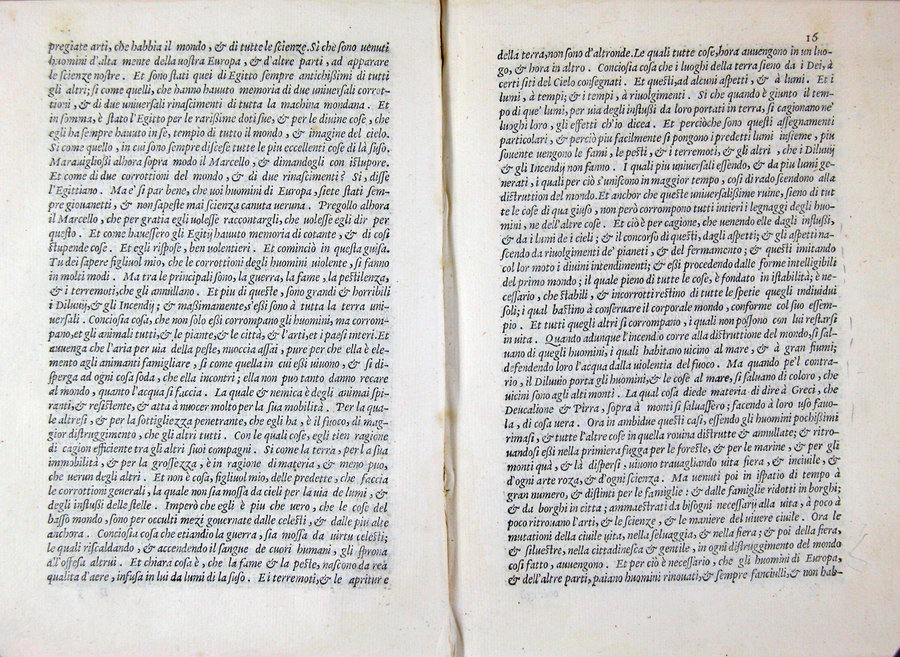 pregiate arti, che habbia il mondo, & di tutte le scienze. Si che sono uenuti
huomini d'alta mente della uostra Europa, & d'altre parti, ad apparare
le scienze nostre. Et sono stati quei di Egitto sempre antichissimi di tutti
gli altri; si come quelli, che hanno hauuto memoria di due uniuersali corrot-
tioni, & di due uniuersali rinascimenti di tutta la machina mondana. Et
in somma, è stato l'Egitto per le rarissime doti sue, & per le diuine cose, che
egli ha sempre hauuto in se, tempio di tutto il mondo, & imagine del cielo.
Si come quello, in cui sono sempre discese tutte le piu eccellenti cose di là suso.
Marauigliossi alhora sopra modo il Marcello, & dimandogli con istupore.
Et come di due corrottioni del mondo, & di due rinascimenti? Si, disse
l'Egittiano. Ma e' si par bene, che uoi huomini di Europa, siete stati sem-
pre giouanetti, & non sapeste mai scienza canuta ueruna. Pregollo alhora
il Marcello, che per gratia egli uolesse raccontargli, che uolesse egli dir per
questo. Et come hauessero gli Egitij hauuto memoria di cotante, & di cosi
stupende cose. Et egli rispose, ben uolentieri. Et cominciò in questa guisa.
Tu dei sapere figliuol mio, che le corrottioni degli huomini uiolente, si fanno
in molti modi. Ma tra le principali sono, la guerra, la fame, la pestilenza,
& i terremoti, che gli annullano. Et piu di queste, sono grandi & horribili
i Diluuij, & gli Incendij; & massimamente, s'essi sono à tutta la terra uni-
uersali. Conciosia cosa, che non solo essi corrompano gli huomini, ma corrom-
pano, et gli animali tutti, & le piante, & le città, & l'arti, et i paesi interi. Et
auuenga che l'aria per uia della peste, nuoccia assai, pure per che ella è ele-
mento agli animanti famigliare, si come quella in cui essi uiuono, & si di-
sperga ad ogni cosa soda, che ella incontri; ella non puo tanto danno recare
al mondo, quanto l'acqua si faccia. La quale & nemica è degli animai spi-
ranti, & resistente, & atta à nuocer molto per la sua mobilità. Per la qua-
le altresi, & per la sottigliezza penetrante, che egli ha, è il fuoco, di mag-
gior distruggimento, che gli altri tutti. Con le quali cose, egli tien ragione
di cagion efficiente tra gli altri suoi compagni. Si come la terra, per la sua
immobilità, & per la grossezza, è in ragione di materia, & meno puo,
che uerun degli altri. Et non è cosa, figliuol mio, delle predette, che faccia
le corrottioni generali, la quale non sia mossa da cieli per la uia de lumi, &
degli influssi delle stelle. Imperò che egli è piu che uero, che le cose del
basso mondo, sono per occulti mezi gouernate dalle celesti, & dalle piu alte
anchora. Conciosia cosa che etiandio la guerra, sia mossa da uirtu celesti;
le quali riscaldando, & accendendo il sangue de cuori humani, gli sprona
all'offesa altrui. Et chiara cosa è, che la fame & la peste, nascono da rea
qualita d'aere, infusa in lui da lumi di la suso. Ei terremoti, & le apriture
16
della terra, non sono d'altronde. Le quali tutte cose, hora auuengono in un luo-
go, & hora in altro. Conciosia cosa che i luoghi della terra sieno da i Dei, à
certi siti del Cielo consegnati. Et questi, ad alcuni aspetti, & à lumi. Et i
lumi, à tempi; & i tempi, à riuolgimenti. Si che quando è giunto il tem-
po di que' lumi, per uia degli influssi da loro portati in terra, si cagionano ne'
luoghi loro, gli effetti ch'io dicea. Et perciòche sono questi assegnamenti
particolari, & perciò piu facilmente si pongono i predetti lumi insieme, piu
souente uengono le fami, le pesti, & i terremoti, & gli altri, che i Diluuij
& gli Incendij non fanno. I quali piu uniuersali essendo, & da piu lumi ge-
nerati, i quali per ciò s'uniscono in maggior tempo, cosi di rado scendono alla
distruttion del mondo. Et anchor che queste uniuersalissime ruine, sieno di tut-
te le cose di qua giuso, non però corrompono tutti intieri i legnaggi degli huo-
mini, ne dell'altre cose. Et ciò è per cagione, che uenendo elle dagli influssi,
& da i lumi de i cieli; & il concorso di questi, dagli aspetti; & gli aspetti na-
scendo da riuolgimenti de' pianeti, & del fermamento; & questi imitando
col lor moto i diuini intendimenti; & essi procedendo dalle forme intelligibili
del primo mondo; il quale pieno di tutte le cose, è fondato in istabilità; è ne-
cessario, che stabili, & incorrotti restino di tutte le spetie quegli indiuidui
soli; i qual bastino à conseruare il corporale mondo, conforme col suo essem-
pio. Et tutti quegli altri si corrompano, i quali non possono con lui restarsi
in uita. Quando adunque l'incendio corre alla distruttione del mondo, si sal-
uano di quegli huomini, i quali habitano uicino al mare, & à gran fiumi;
defendendo loro l'acqua dalla uiolentia del fuoco. Ma quando pe'l contra-
rio, il Diluuio porta gli huomini, & le cose al mare, si saluano di coloro, che
uicini sono agli alti monti. La qual cosa diede materia di dire à Greci, che
Deucalione & Pirra, sopra à monti si saluassero; facendo à loro uso fauo-
la, di cosa uera. Ora in ambidue questi casi, essendo gli huomini pochissimi
rimasi, & tutte l'altre cose in quella rouina distrutte & annullate; & ritro-
uandosi essi nella primiera fugga per le foreste, & per le marine, & per gli
monti quà, & là dispersi, uiuono trauagliando uita fiera, & inciuile, &
d'ogni arte roza, & d'ogni scienza. Ma uenuti poi in ispatio di tempo à
gran numero, & distinti per le famiglie: & dalle famiglie ridotti in borghi;
& da borghi in citta; ammaestrati da bisogni necessarij alla uita, à poco à
poco ritrouano l'arti, & le scienze, & le maniere del uiuere ciuile. Ora le
mutationi della ciuile uita, nella seluaggia, & nella fiera; & poi della fiera,
& siluestre, nella cittadinesca & gentile, in ogni distruggimento del mondo
cosi fatto, auuengono. Et per ciò è necessario, che gli huomini di Europa,
& dell'altre parti, paiano huomini rinouati, & sempre fanciulli, & non hab-